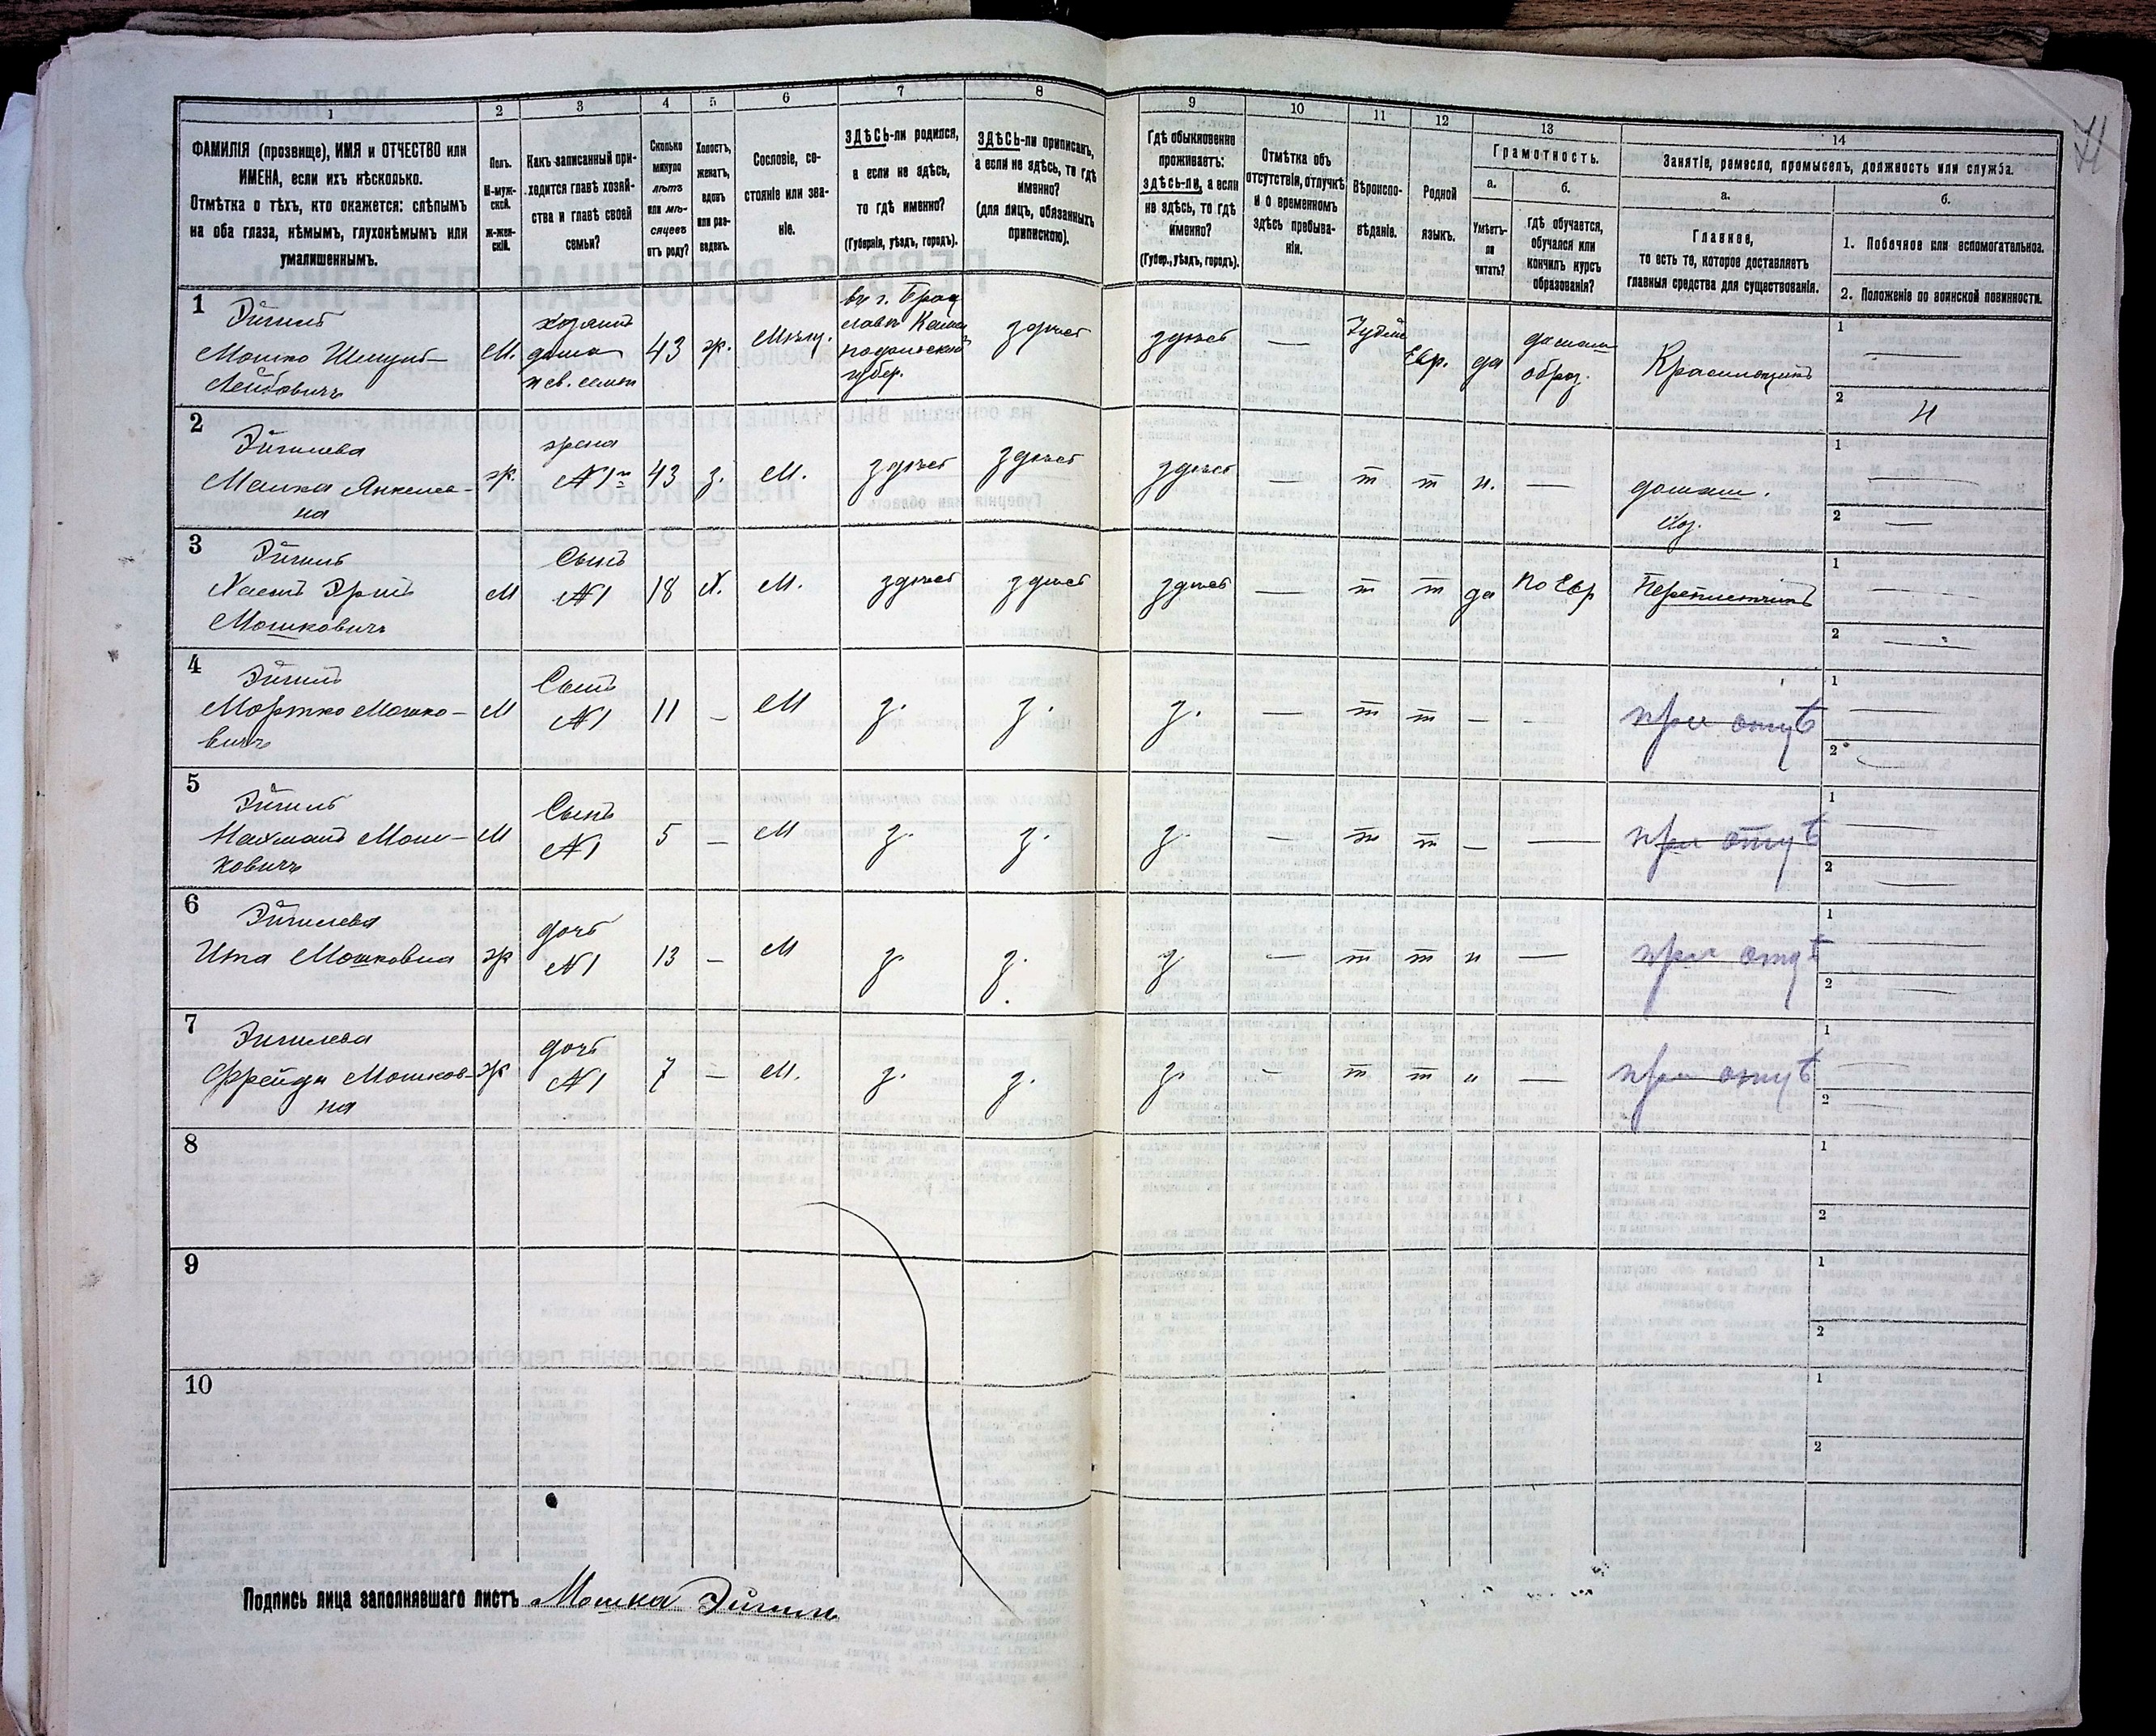 71
1
2
3
4
5
6
7
8
9
10
11
12
13
14
ФАМИЛІЯ (прозвище), ИМЯ и ОТЧЕСТВО или
ИМЕНА, если ихъ нѣсколько.
Отмѣтка о тѣхъ, кто окажется: слѣпымъ
на оба глаза, нѣмымъ, глухонѣмымъ или
умалишеннымъ.
Полъ.
М-муж-
ской.
Ж-жен-
скій.
Какъ записанный при-
ходится главѣ хозяй-
ства и главѣ своей
семьи?
Сколько
минуло
лѣтъ
или мѣ-
сяцевъ
отъ роду?
Холостъ,
женатъ,
вдовъ
или раз-
веденъ.
Сословіе, со-
стояніе или зва-
ніе.
ЗДѢСЬ-ли родился,
а если не здѣсь,
то гдѣ именно?
(Губернія, уѣздъ, городъ).
ЗДѢСЬ-ли приписанъ,
а если не здѣсь, то гдѣ
именно?
(для лицъ, обязанныхъ
припискою).
Гдѣ обыкновенно
проживаетъ:
здѣсь-ли, а если
не здѣсь, то гдѣ
именно?
(Губер., уѣздъ, городъ).
Отмѣтка объ
отсутствіи, отлучкѣ
и о временномъ
здѣсь пребыва-
ніи.
Вѣроиспо-
вѣданіе.
Родной
языкъ.
Грамотность.
а.
б.
Умѣетъ-
ли
читать?
гдѣ обучается,
обучался или
кончилъ курсъ
образованія?
Занятіе, ремесло, промыселъ, должность или служба.
а.
б.
Главное,
то есть то, которое доставляетъ
главныя средства для существованія.
1. Побочное или вспомогательное.
2. Положеніе по воинской повинности.
1
Мошко
Лейбовичъ
М.
хозяинъ
дома
43
ж.
Мѣщ.
въ г. Брац
Подольской
губер.
здѣсь
здѣсь
—
Іудей
Евр.
да
домаш
образ.
1 —
2
2
Малка Янкеле-
на
ж.
жена
№1
43
з.
М.
здѣсь
здѣсь
здѣсь
—
т
т
н.
—
домаш.
хоз.
1 —
2 —
3
Мошковичъ
М
Сынъ
№1
18
Х.
М.
здѣсь
здѣсь
здѣсь
—
т
т
да
по Евр
1 —
2 —
4
Мортко Мошко-
вичъ
М
Сынъ
№1
11
—
М
з.
з.
з.
—
т
т
—
—
при отцѣ
1 —
2
5
Нахманъ Мош-
ковичъ
М
Сынъ
№1
5
—
М
з.
з.
з.
—
т
т
—
—
при отцѣ
1 —
2 —
6
Ита Мошковна
ж
дочь
№1
13
—
М
з.
з.
з
—
т
т
н
—
при отцѣ
1 —
2 —
7
Фрейда Мошков-
на
ж
дочь
№1
7
—
М.
з.
з.
з.
—
т
т
н
—
при отцѣ
1 —
2 —
8
1
2
9
1
2
10
1
2
Подпись лица заполнявшаго листъ Мошка